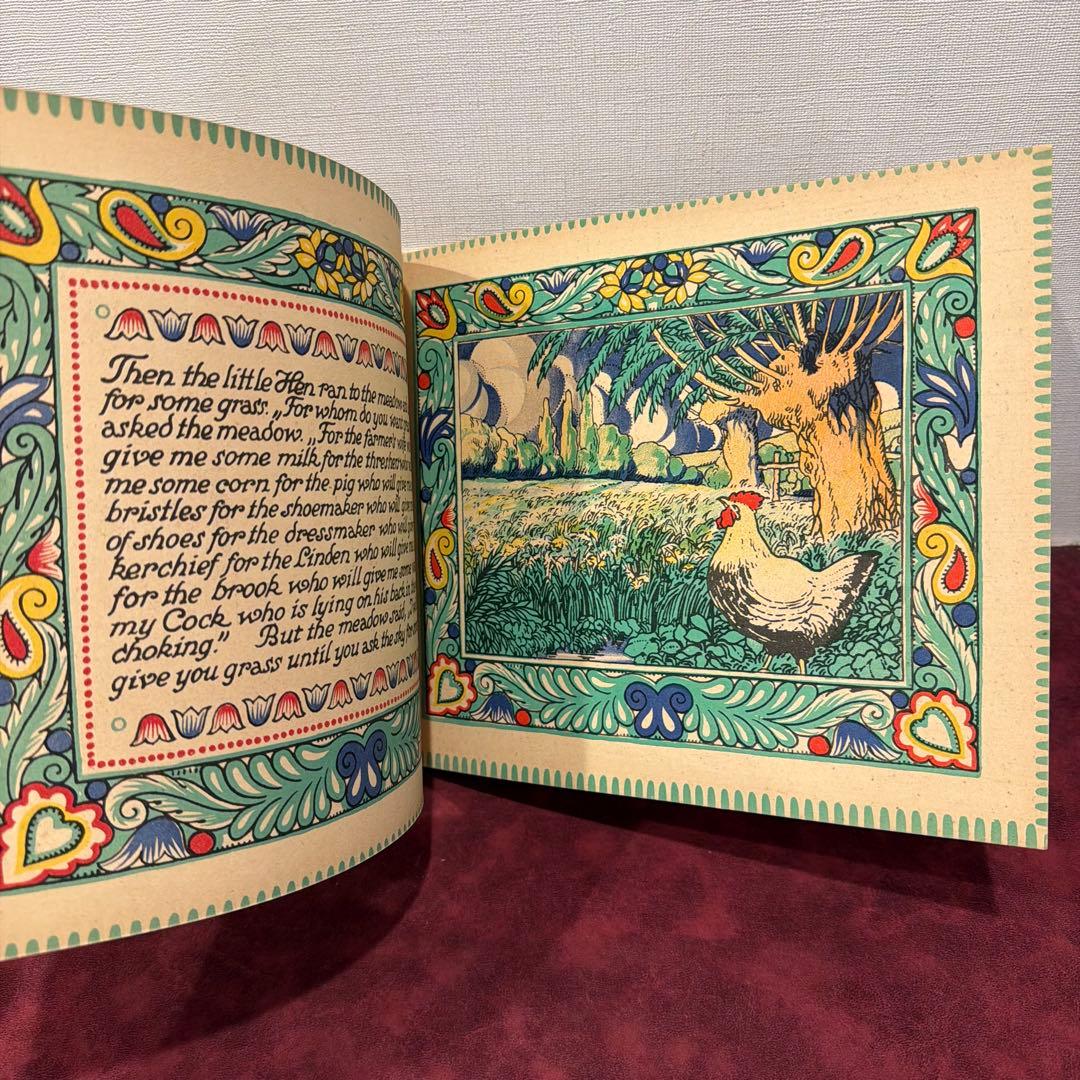 Then the little Hen ran to the meadow
for some grass. „For whom do you want
asked the meadow. „For the farmer's wife
give me some milk for the thresher who
me some corn for the pig who will give
bristles for the shoemaker who will
of shoes for the dressmaker who will
kerchief for the Linden who will give
for the brook who will give me some
my Cock who is lying on his back
choking." But the meadow said,
give you grass until you ask the sky for